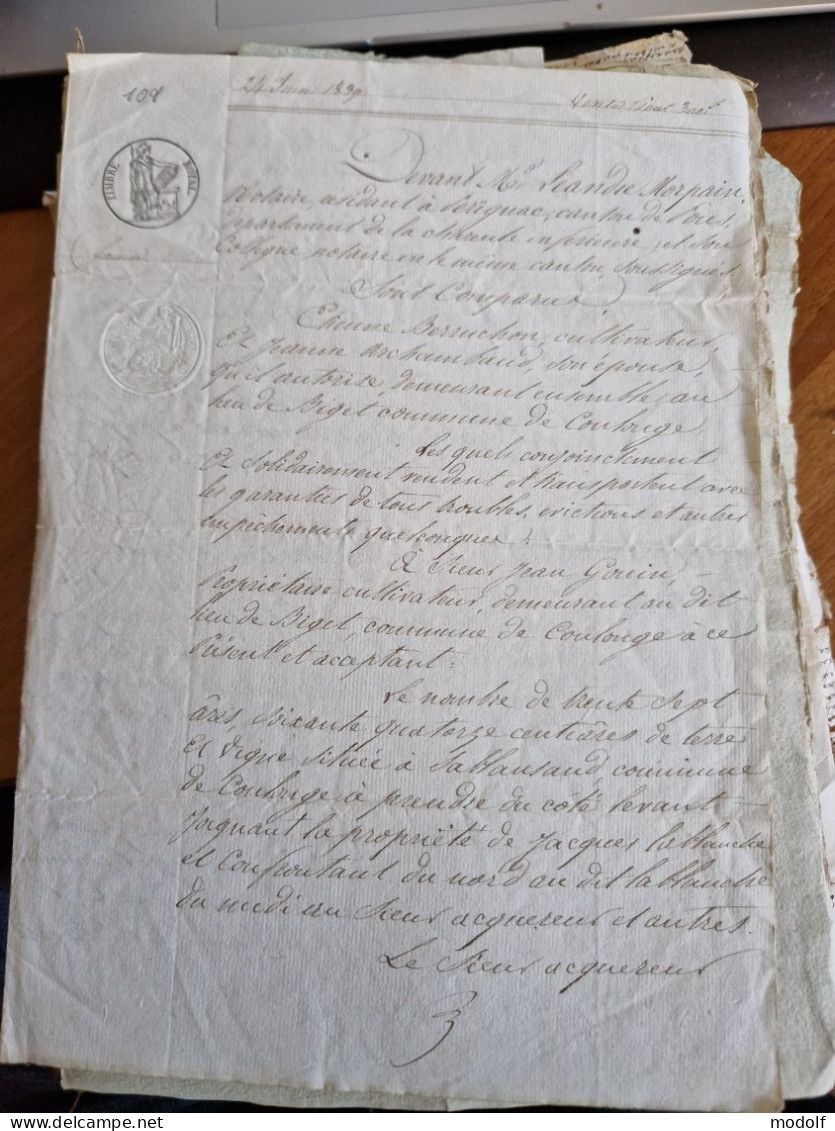 108
24 Juin 1839
TIMBRE ROYAL
Devant Me Léandre Morpain,
Notaire, résidant à Pérignac, canton de Pons,
département de la charente inférieure, et son
Collègue notaire en le même canton, soussignés,
Sont Comparus
Etienne Berruchon, cultivateur,
Et Jeanne Archambaud, son épouse,
qu'il autorise, demeurant ensemble, au
lieu de Biget commune de Coulonge,
Les quels conjoinctement
Et solidairement vendent et transportent avec
les garanties de tous troubles, evictions et autres
empêchements quelconques;
à Sieur Jean Gouin,
Propriétaire cultivateur, demeurant au dit
lieu de Biget, commune de Coulonge à ce
Présent et acceptant:
Le nombre de trente sept
âris, soixante quatorze centiâres de terre
Et vigne située à commune
de Coulonge à prendre du côté levant
Joignant la propriété de Jacques lablanche
et Confrontant du nord au dit lablanche
du midi au Sieur acquereur et autres.
Le Sieur acquereur
modolf